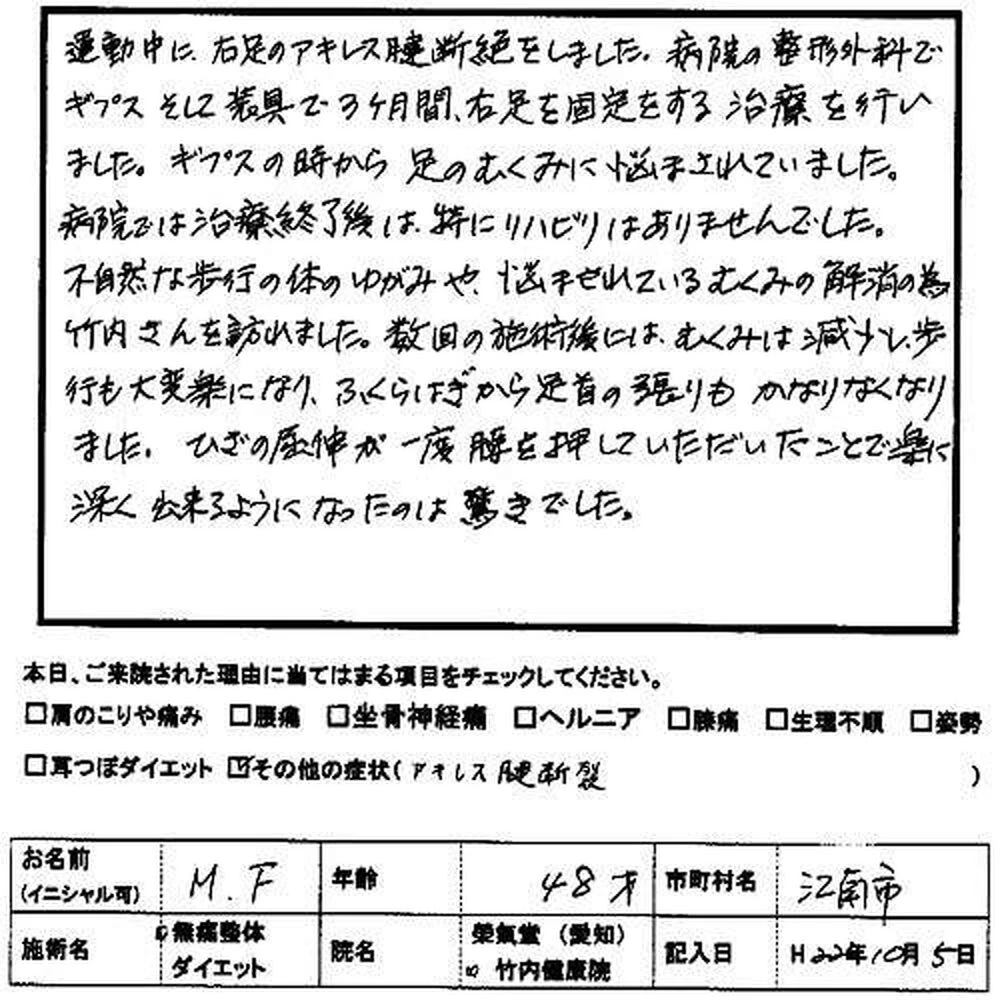 運動中に、右足のアキレス腱断絶をしました。病院の整形外科で
ギプスそして装具で3ヶ月間、右足を固定をする治療を行い
ました。ギプスの時から足のむくみに悩まされていました。
病院では治療終了後は、特にリハビリはありませんでした。
不自然な歩行の体のゆがみや、悩ませれているむくみの解消の為
竹内さんを訪れました。数回の施術後には、むくみは減少し、歩
行も大変楽になり、ふくらはぎから足首の張りもかなりなくなり
ました。ひざの屈伸が一度腰を押していただいたことで楽に
深く出来るようになったのは驚きでした。
本日、ご来院された理由に当てはまる項目をチェックしてください。
□肩のこりや痛み □腰痛 □坐骨神経痛 □ヘルニア □膝痛 □生理不順 □姿勢
□耳つぼダイエット ☑その他の症状(アキレス腱断裂)
お名前 (イニシャル可) M.F 年齢 48才 市町村名 江南市
施術名 無痛整体 ダイエット 院名 榮氣堂(愛知) 竹内健康院 記入日 H22年10月5日